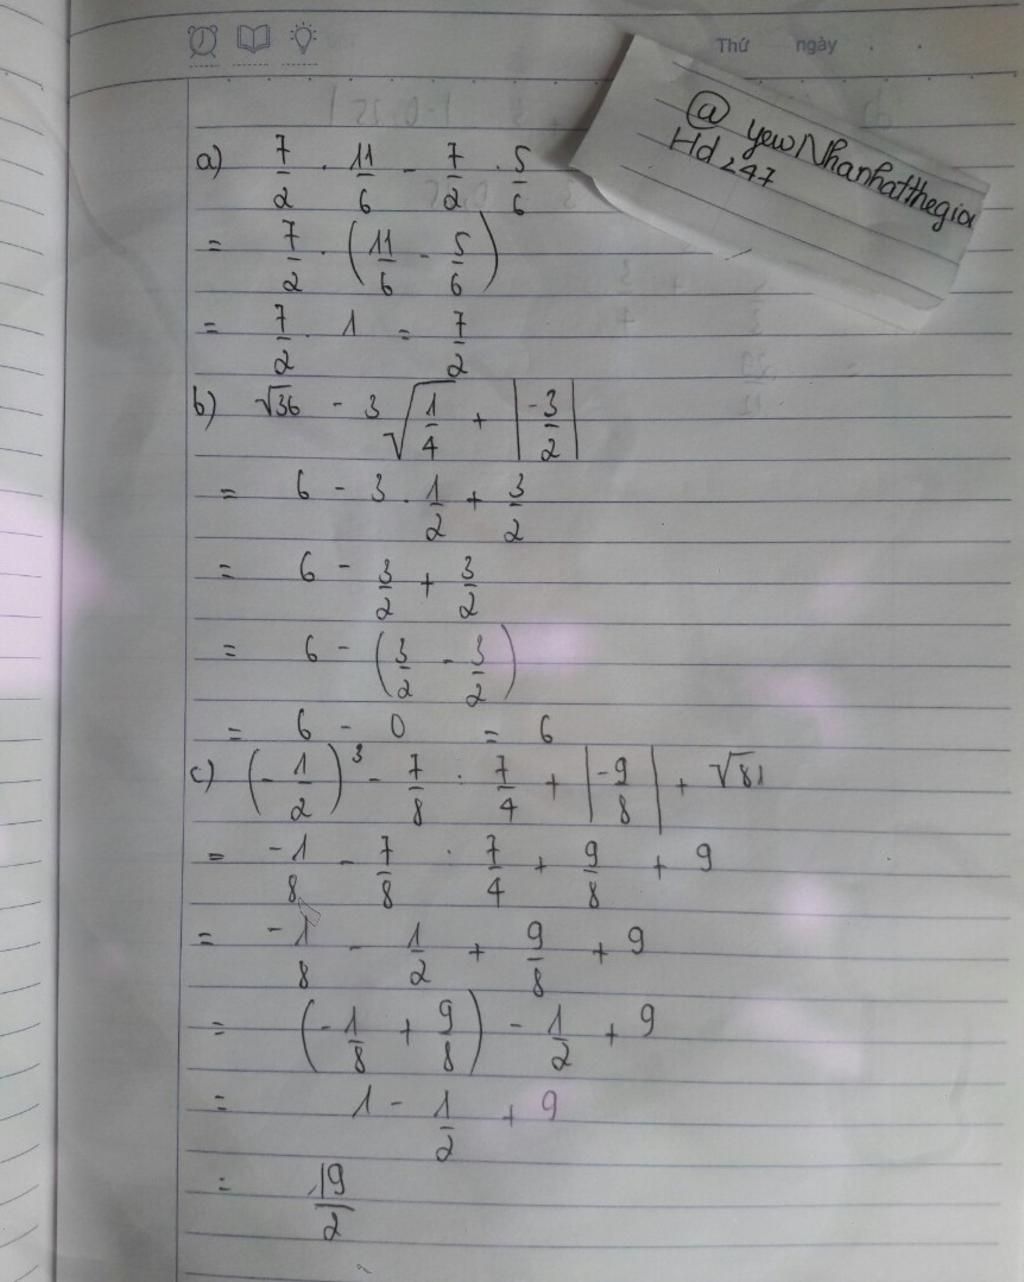 Thứ ngày
@ yewNhanhatthegioi
Hd247
a) 7/2 . 11/6 - 7/2 . 5/6
= 7/2 . (11/6 - 5/6)
= 7/2 . 1 = 7/2
b) √36 - 3 √(1/4) + |-3/2|
= 6 - 3 . 1/2 + 3/2
= 6 - 3/2 + 3/2
= 6 - (3/2 - 3/2)
= 6 - 0 = 6
c) (-1/2)³ - 7/8 : 7/4 + |-9/8| + √81
= -1/8 - 7/8 . 7/4 + 9/8 + 9
= -1/8 - 1/2 + 9/8 + 9
= (-1/8 + 9/8) - 1/2 + 9
= 1 - 1/2 + 9
= 19/2